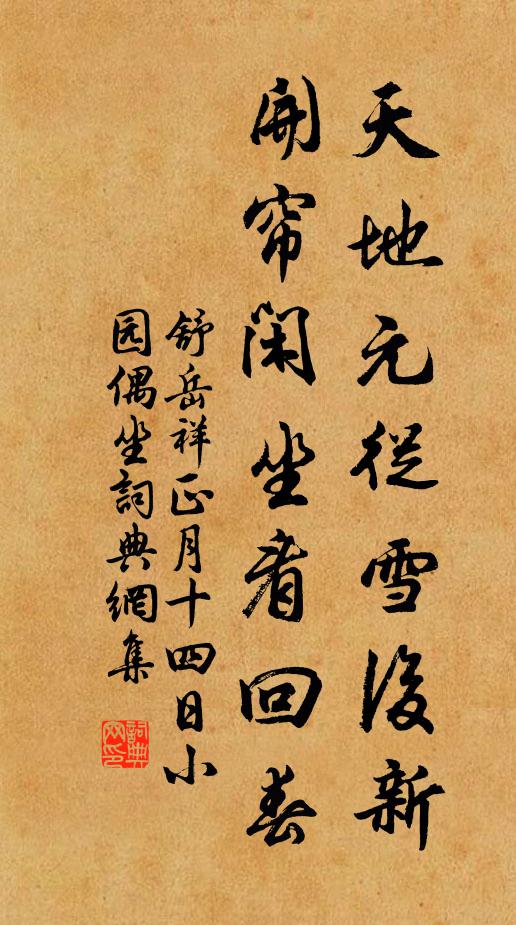 天地元從雪後新
開帘闲坐看回春
舒岳祥正月十四日小
园偶坐詞典網集
詞典网印